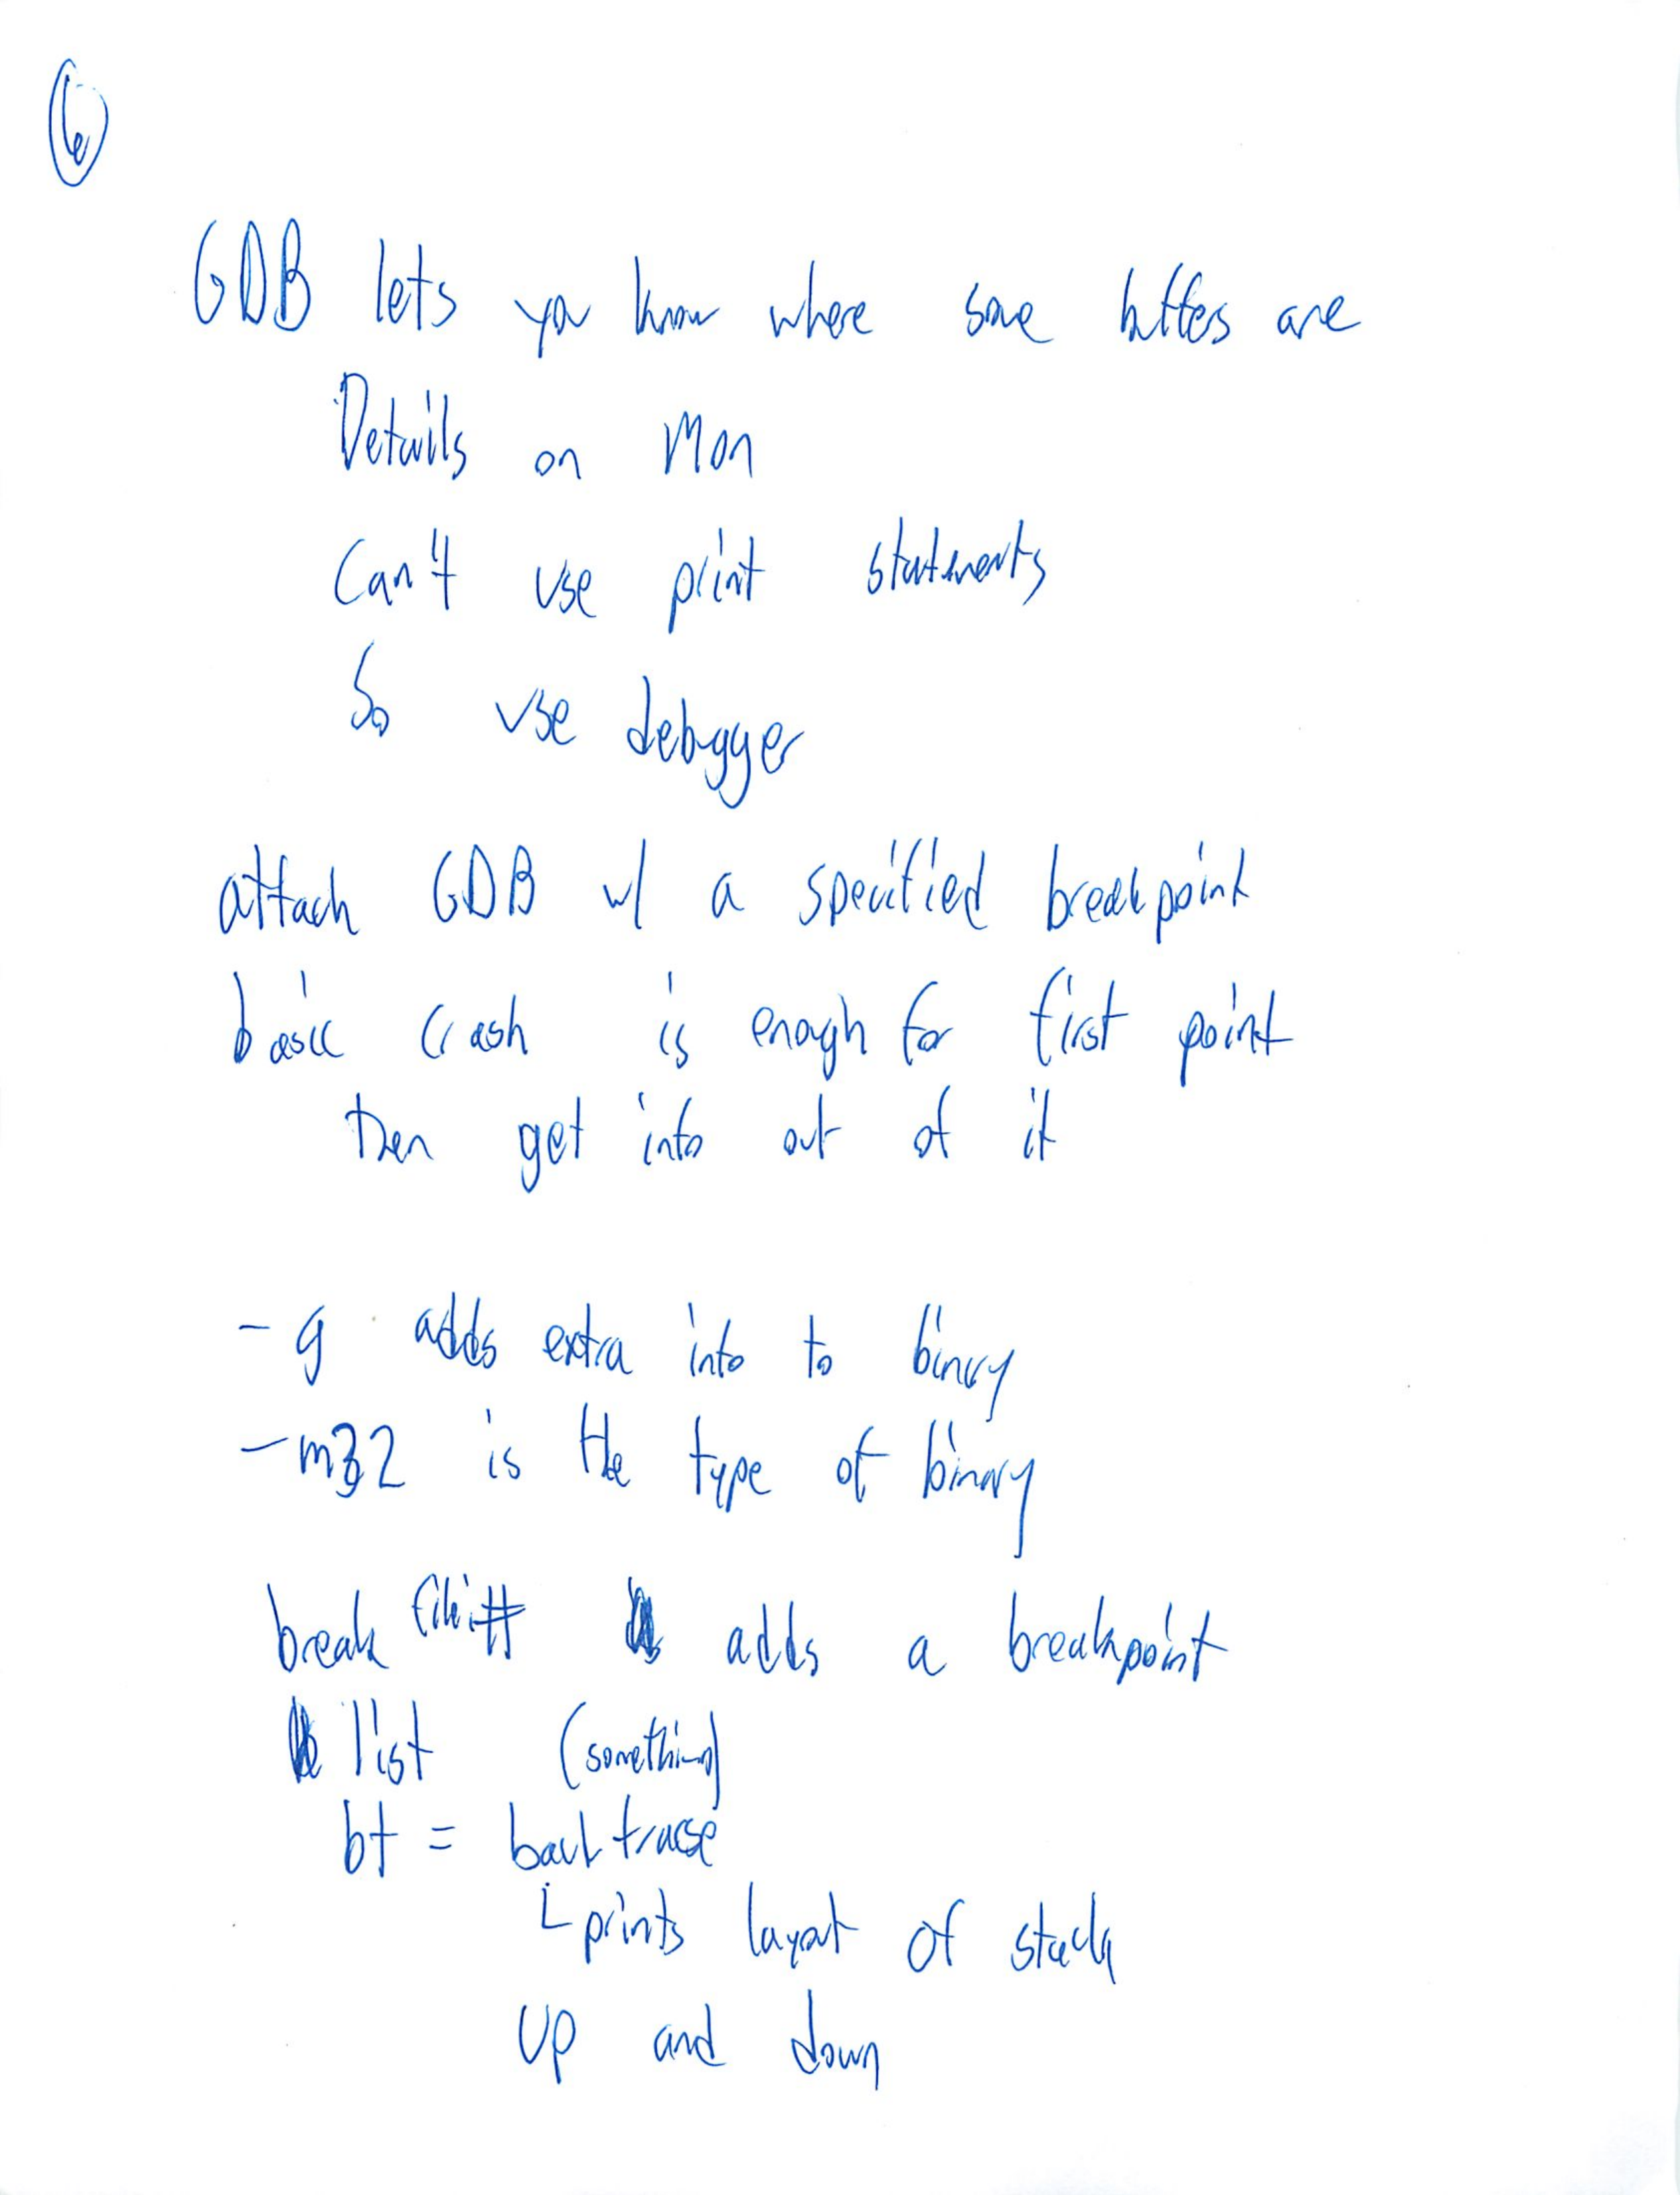 6
GDB lets you know where some buffers are
Details on Mon
Can't use print statments
So use debugger
attach GDB w/ a specified breakpoint
basic crash is enough for first point
then get info out of it
-g adds extra info to binary
-m32 is the type of binary
break file:# adds a breakpoint
list (something)
bt = backtrace
prints layout of stack
up and down